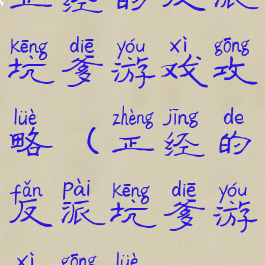 正经的反派
kēng diē yóu xì gōng
坑爹游戏攻
lüè zhèng jīng de
略(正经的
fǎn pài kēng diē yóu
反派坑爹游
xì gōng lüè